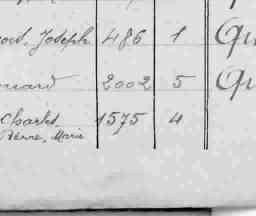 Joseph 486 1 Qu
2002 5 Qu
Charles 1575 4
Pierre, Marie